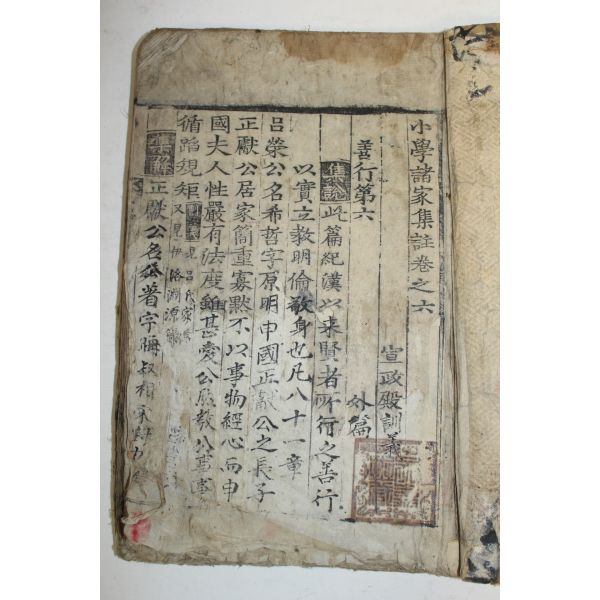 小學諸家集註卷之六
宣政殿訓義
善行第六
外篇
集說 此篇紀漢以來賢者所行之善行
以實立教明倫敬身也凡八十一章
呂滎公名希哲字原明申國正獻公之長子
正獻公居家簡重寡默不以事物經心而申
國夫人性嚴有法度雖甚愛公然教公事事
循蹈規矩
見呂氏家
又見伊洛淵源錄
正獻公名 著字晦叔相